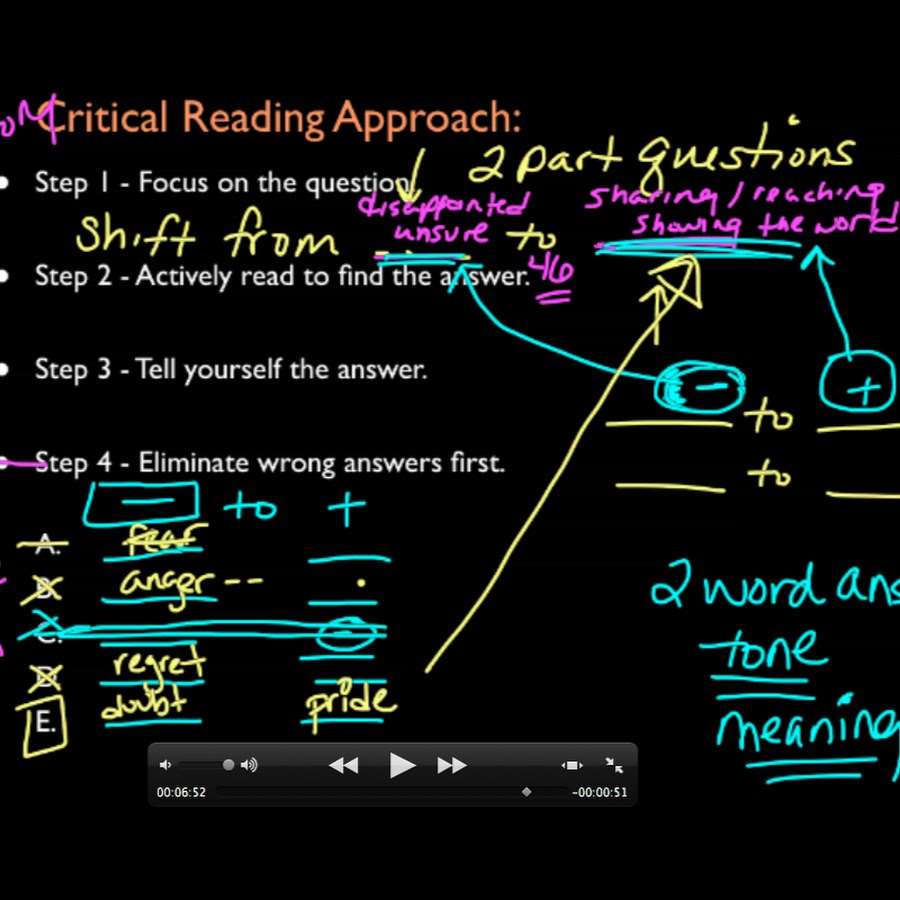 Critical Reading Approach:
2 part questions
Step 1 - Focus on the question.
disappointed
sharing / reaching
showing the world
shift from unsure to
46
Step 2 - Actively read to find the answer.
Step 3 - Tell yourself the answer.
- +
to
to
Step 4 - Eliminate wrong answers first.
- to +
A. fear
B. anger --
C. -
D. regret
E. doubt pride
2 word ans
tone
meaning
00:06:52 -00:00:51